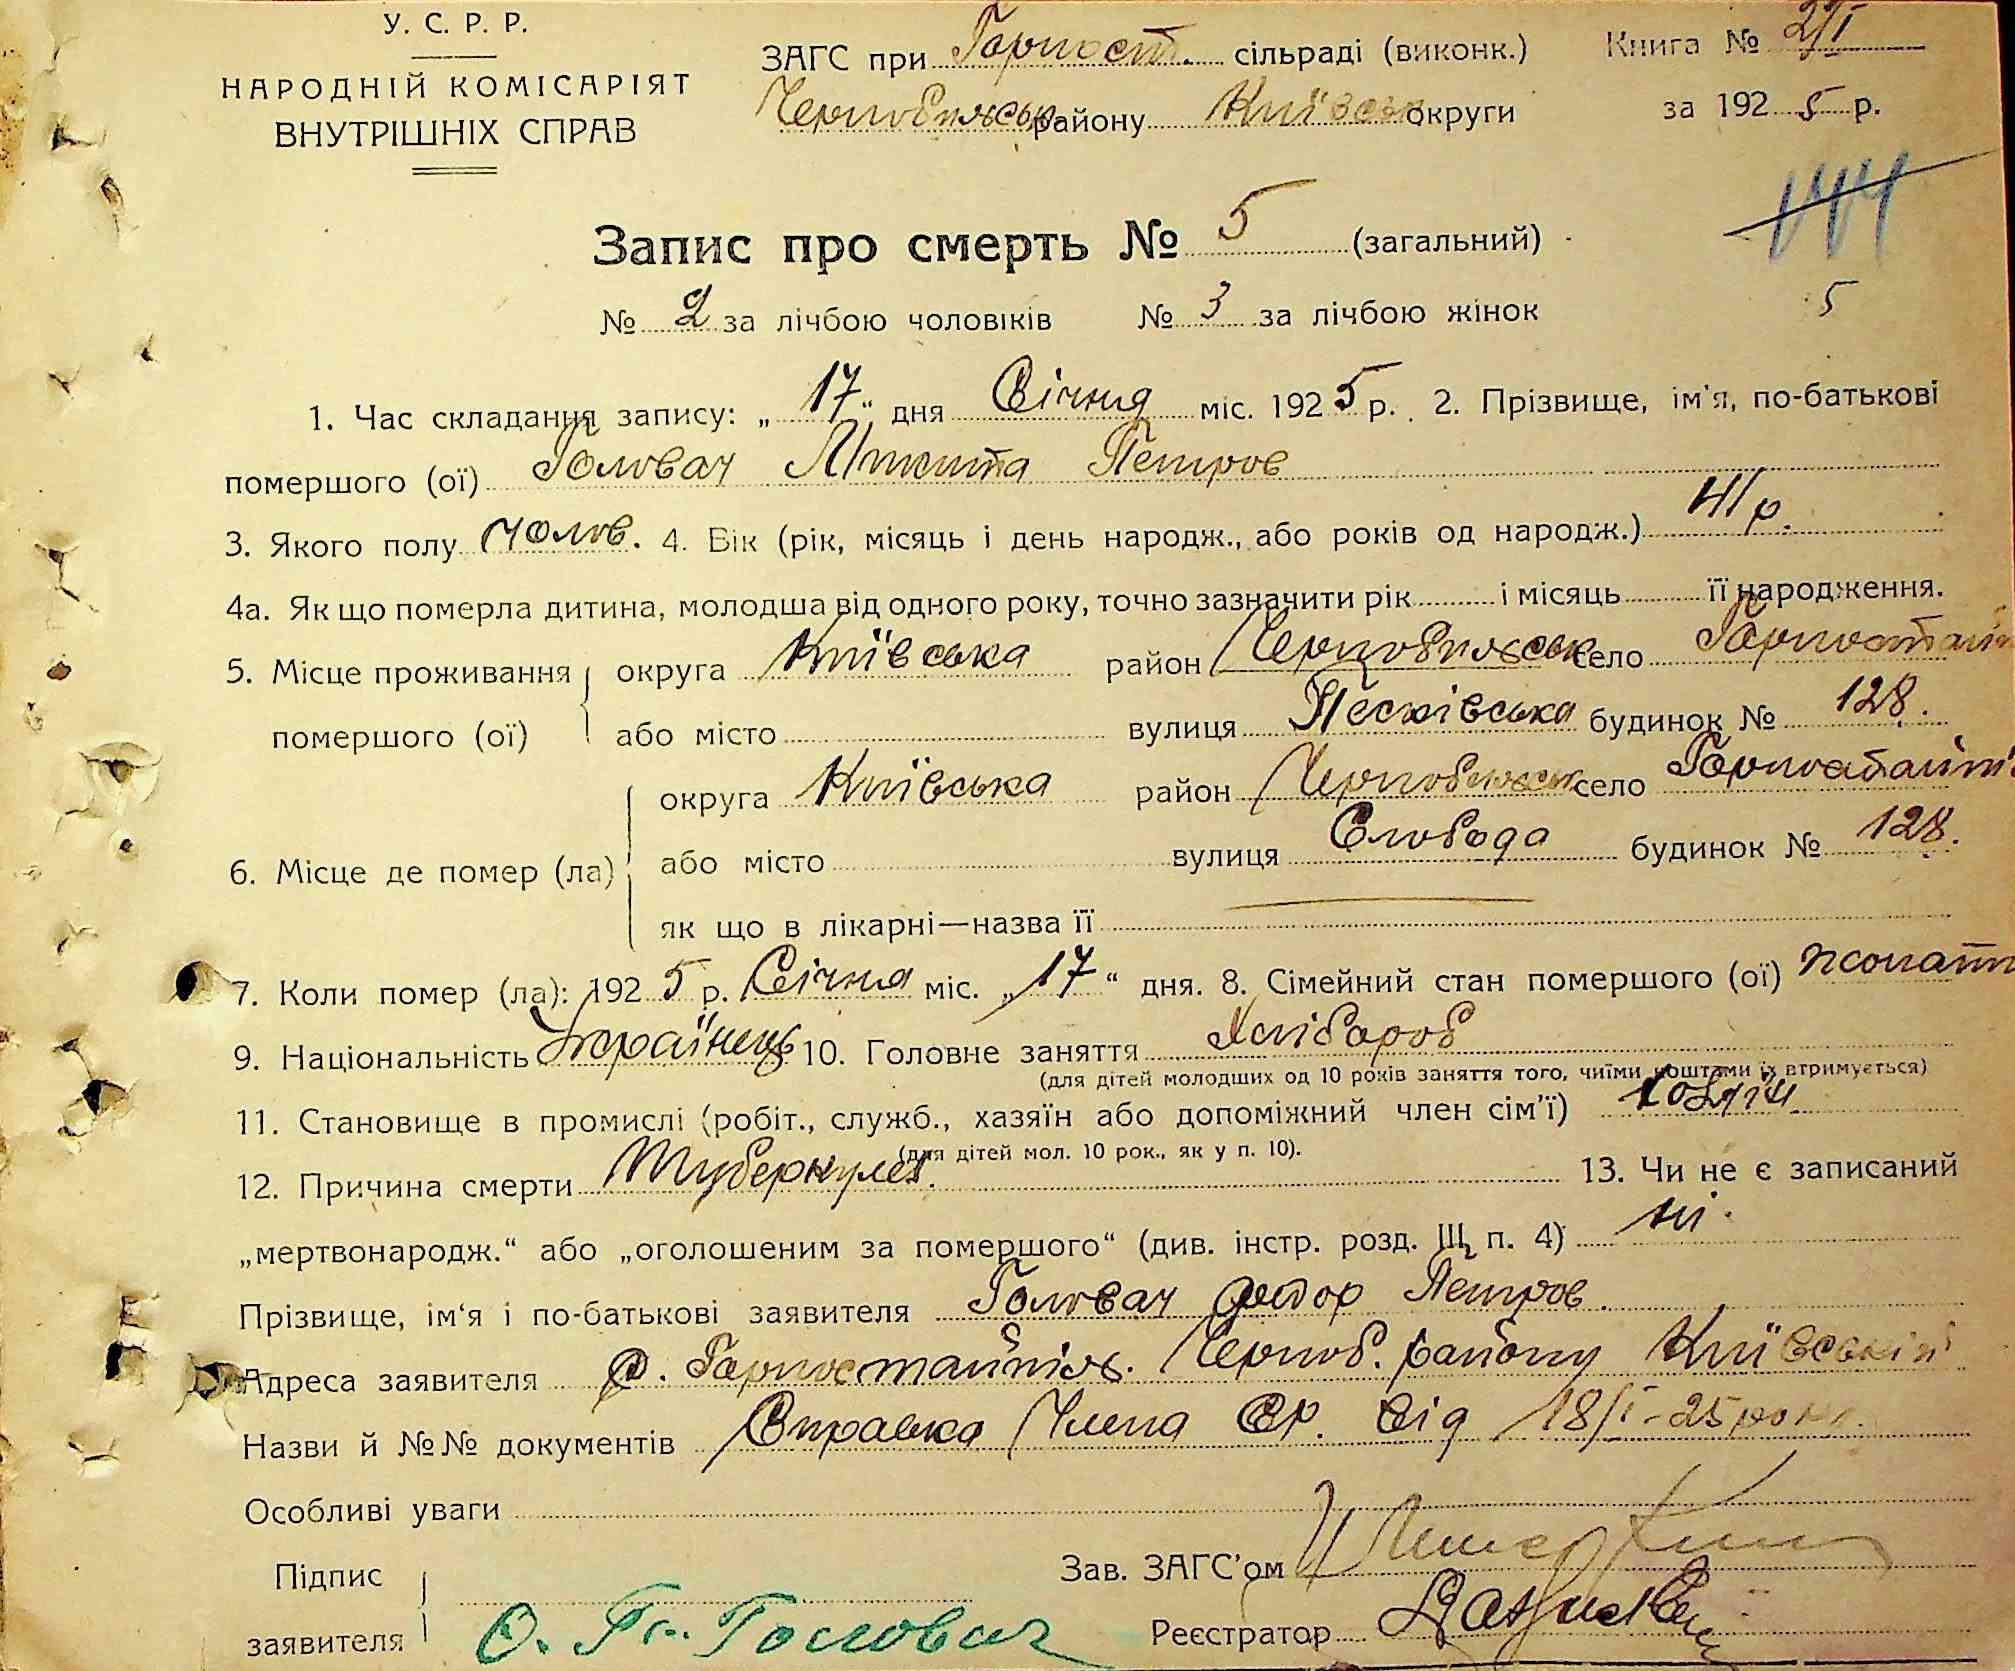 У. С. Р. Р.
НАРОДНІЙ КОМІСАРІЯТ
ВНУТРІШНІХ СПРАВ
ЗАГС при Горност. сільраді (виконк.)
Чернобильськ району Київськ округи
Книга № 2/I
за 1925 р.
144
Запис про смерть № 5 (загальний)
№ 2 за лічбою чоловіків № 3 за лічбою жінок
5
1. Час складання запису: „17“ дня Січня міс. 1925 р. 2. Прізвище, ім'я, по-батькові
помершого (ої) Головач Микита Петров
3. Якого полу чолов. 4. Вік (рік, місяць і день народж., або років од народж.) 41 р.
4а. Як що померла дитина, молодша від одного року, точно зазначити рік і місяць її народження.
5. Місце проживання помершого (ої) округа Київська район Чернобильськ село Горностайп
або місто вулиця Песківська будинок № 128.
6. Місце де помер (ла) округа Київська район Чернобильськ село Горностайпі
або місто вулиця Слобода будинок № 128.
як що в лікарні—назва її
7. Коли помер (ла): 1925 р. Січня міс. „17“ дня. 8. Сімейний стан помершого (ої) жонат
9. Національність Українець 10. Головне заняття Хлібороб
(для дітей молодших од 10 років заняття того, чиїми коштами їх втримується)
11. Становище в промислі (робіт., служб., хазяїн або допоміжний член сім'ї)
(для дітей мол. 10 рок., як у п. 10).
12. Причина смерти Туберкулез. 13. Чи не є записаний
„мертвонародж.“ або „оголошеним за помершого“ (див. інстр. розд. III, п. 4) ні.
Прізвище, ім'я і по-батькові заявителя Головач Федор Петров.
Адреса заявителя с. Горностайпіль. Черноб. району Київській
Назви й №№ документів Справка Члена Ср. від 18/I-25 року.
Особливі уваги
Підпис заявителя Ф. Головач
Зав. ЗАГС'ом
Реєстратор